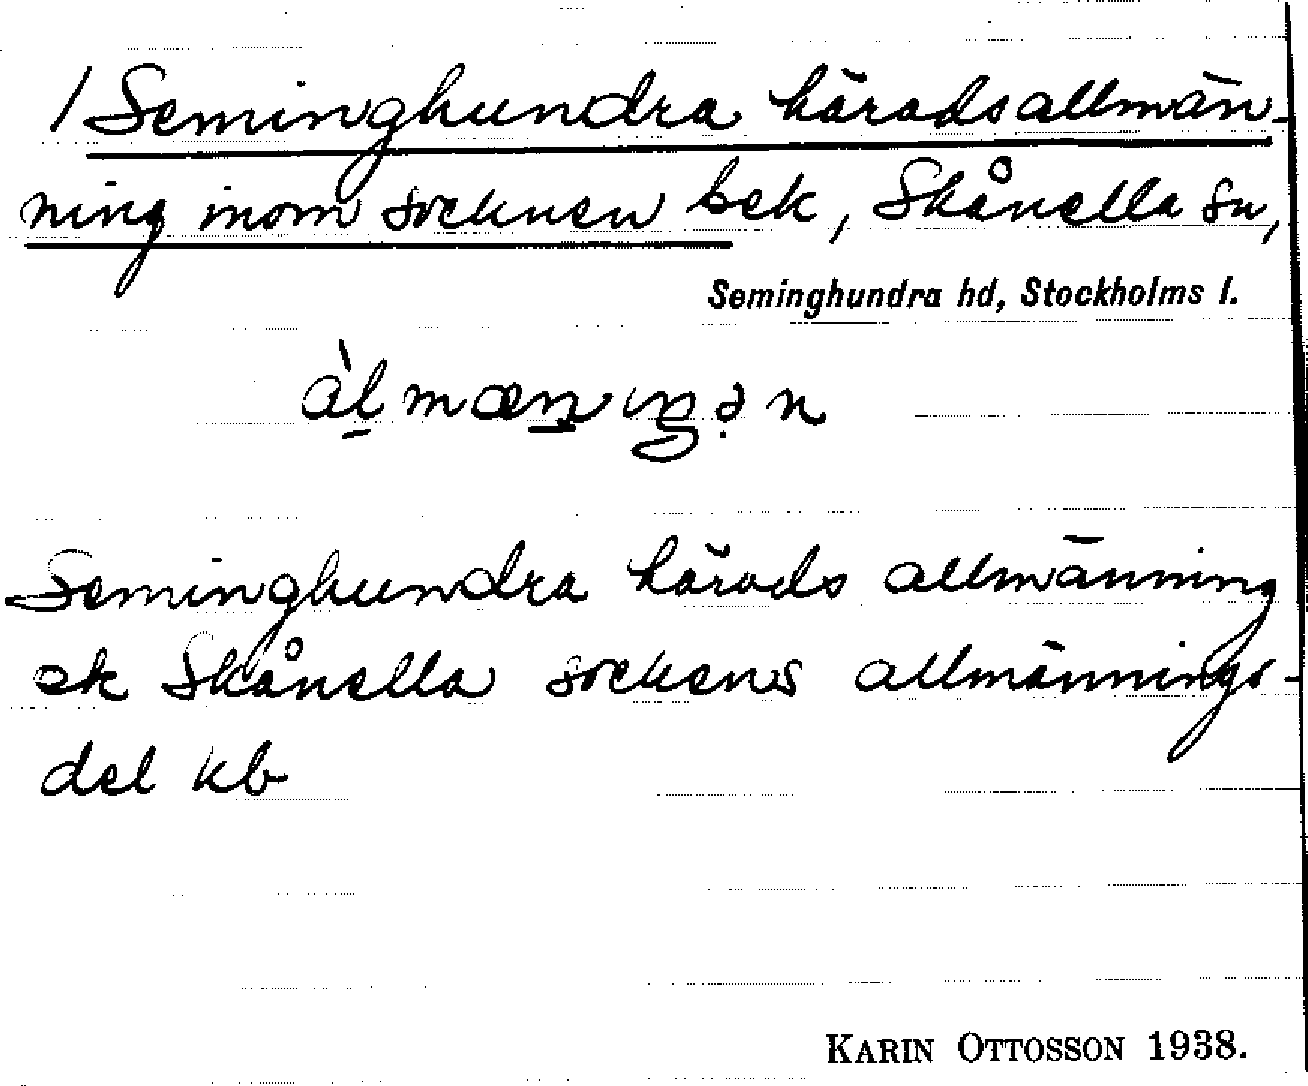 / Seminghundra häradsallmän-
ning inom socknen bek, Skånella sn,
Seminghundra hd, Stockholms l.
àlmænıŋən
Seminghundra härads allmänning
ek Skånella sockens allmännings-
del kb
KARIN OTTOSSON 1938.